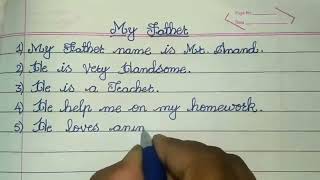 My Father
1) My Father name is Mr. Anand.
2) He is Very Handsome.
3) He is a Teacher.
4) He help me on my homework.
5) He loves anim